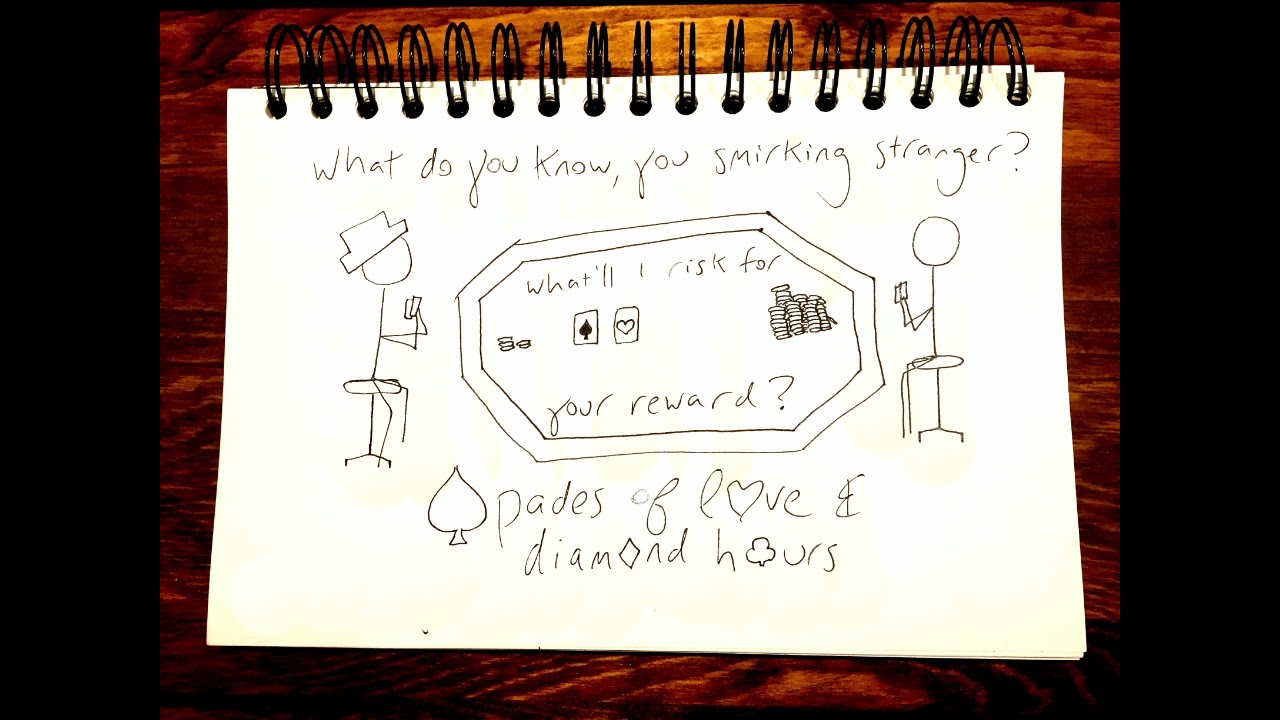 What do you know, you smirking stranger?
what'll I risk for
your reward?
♠pades of l♡ve &
diam♢nd h♣urs